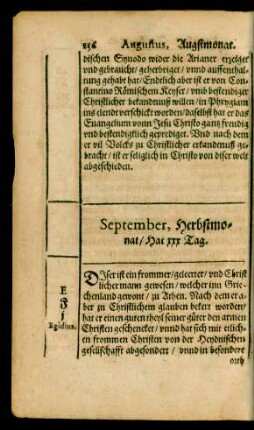 236 Augustus, Augstmonat.
dischen Synodo wider die Arianer erzelger
vnd gebraucht / geherbriget / vnnd auffenthal-
tung gehabt har / Endtlich aber ist er von Con-
stantino Römischem Keyser / vmb bestendiger
Christlicher bekandtnuß willen / in Phrygiam
ins elend verschickt worden / daselbst hat er das
Euangelium vonn Jesu Christo gantz freudig
vnd bestendigklich geprediget. Vnd nach dem
er vil Volcks zu Christlicher erkandtnuß ge-
bracht / ist er seliglich in Christo von diser welt
abgescheiden.
September, Herbstmo-
nat / Hat xxx Tag.
E
F
j
Egidius.
DIser ist ein frommer / geleerter / vnd Christ
licher mann gewesen / welcher inn Grie-
chenland gewont / zu Athen. Nach dem er a-
ber zu Christlichem glauben bekert worden /
hat er einen guten theyl seiner güter den armen
Christen geschencket / vnnd hat sich mit etlich-
en frommen Christen von der Heydnischen
gesellschafft abgesondert / vnnd in besondere